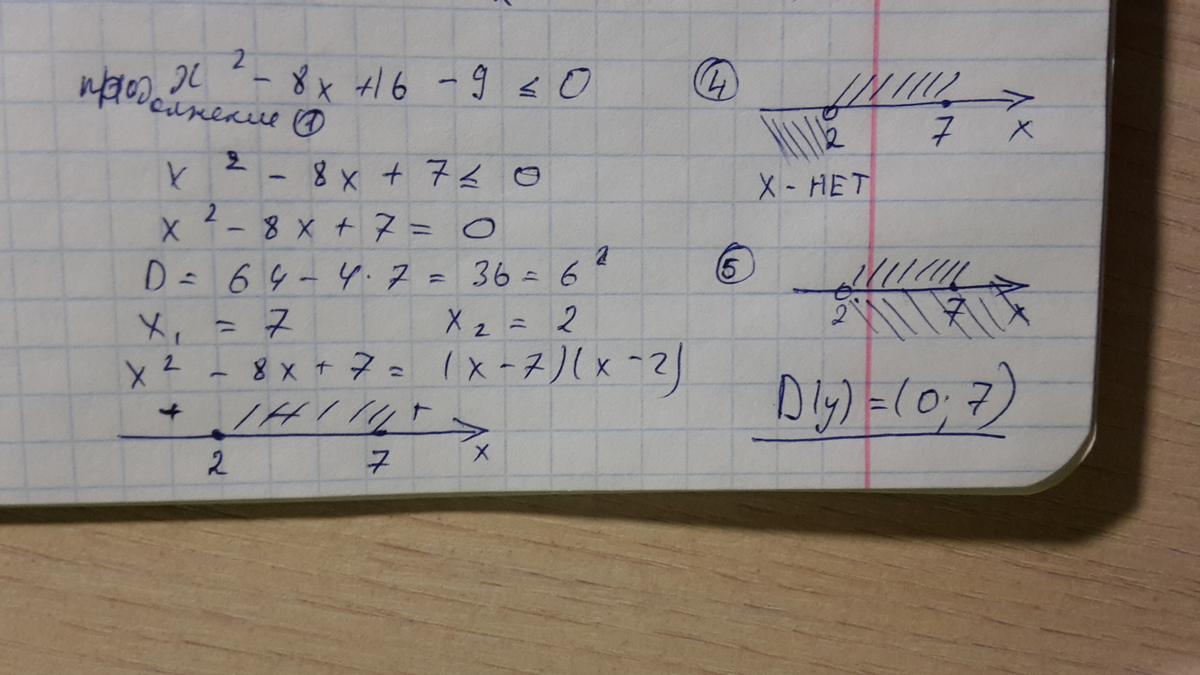 продолжение ①
x² - 8x + 16 - 9 ≤ 0
x² - 8x + 7 ≤ 0
x² - 8x + 7 = 0
D = 64 - 4·7 = 36 = 6²
x₁ = 7 x₂ = 2
x² - 8x + 7 = (x - 7)(x - 2)
+ +
2 7 x
④
2 7 x
X - НЕТ
⑤
2 7 x
D(y) = (0; 7)